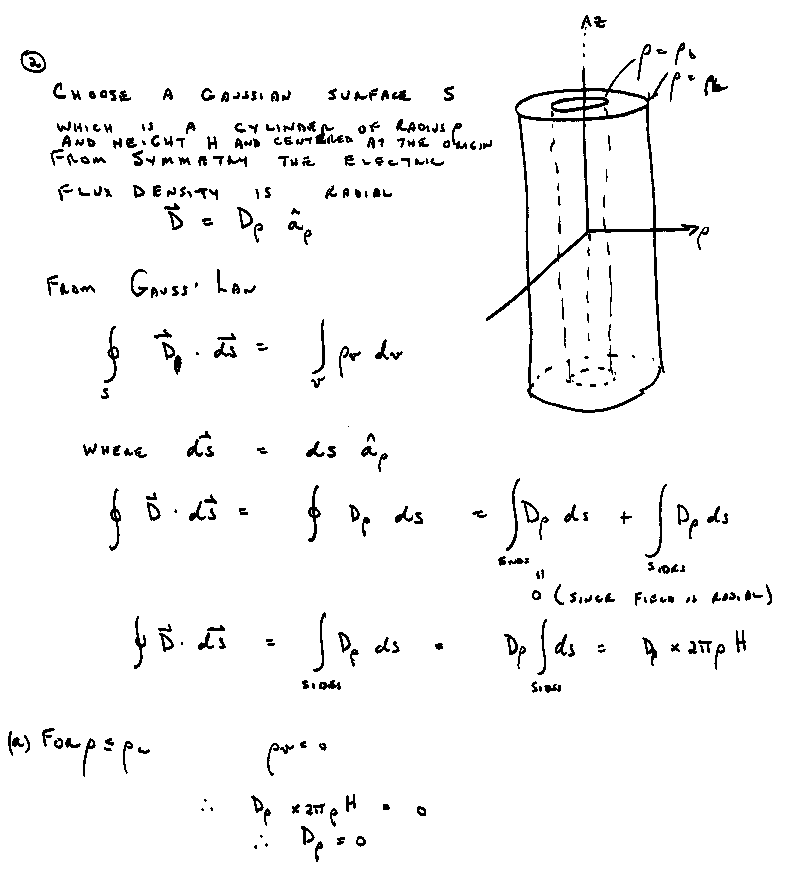 ②
CHOOSE A GAUSSIAN SURFACE S
WHICH IS A CYLINDER OF RADIUS ρ
AND HEIGHT H AND CENTERED AT THE ORIGIN
FROM SYMMETRY THE ELECTRIC
FLUX DENSITY IS RADIAL
D⃗ = Dρ âρ
z
ρ = ρb
ρ =
ρ
FROM GAUSS' LAW
∮S D⃗ · ds⃗ = ∫v ρv dv
WHERE ds⃗ = ds âρ
∮ D⃗ · ds⃗ = ∮ Dρ ds = ∫ENDS Dρ ds + ∫SIDES Dρ ds
0 (SINCE FIELD IS RADIAL)
∮ D⃗ · ds⃗ = ∫SIDES Dρ ds = Dρ ∫SIDES ds = Dρ × 2πρ H
(a) FOR ρ ≤ ρa ρv = 0
∴ Dρ × 2πρ H = 0
∴ Dρ = 0